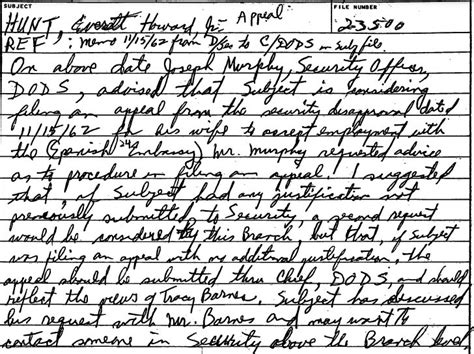 SUBJECT
FILE NUMBER
HUNT, Everett Howard Jr. Appeal:
23500
REF: memo 11/15/62 from D/Sec to C/DODS in subj file.
On above date Joseph Murphy, Security Officer,
DODS, advised that Subject is considering
filing an appeal from the security disapproval dated
11/15/62 for his wife to accept employment with
the (Spanish Embassy) Mr. Murphy requested advice
as to procedure in filing an appeal. I suggested
that, if Subject had any justification not
previously submitted to Security, a second request
would be considered by this Branch, but that, if Subject
was filing an appeal with no additional justification, the
appeal should be submitted thru Chief, DODS, and should
reflect the views of Tracy Barnes. Subject has discussed
his request with Mr. Barnes and may want to
contact someone in Security above the Branch level.